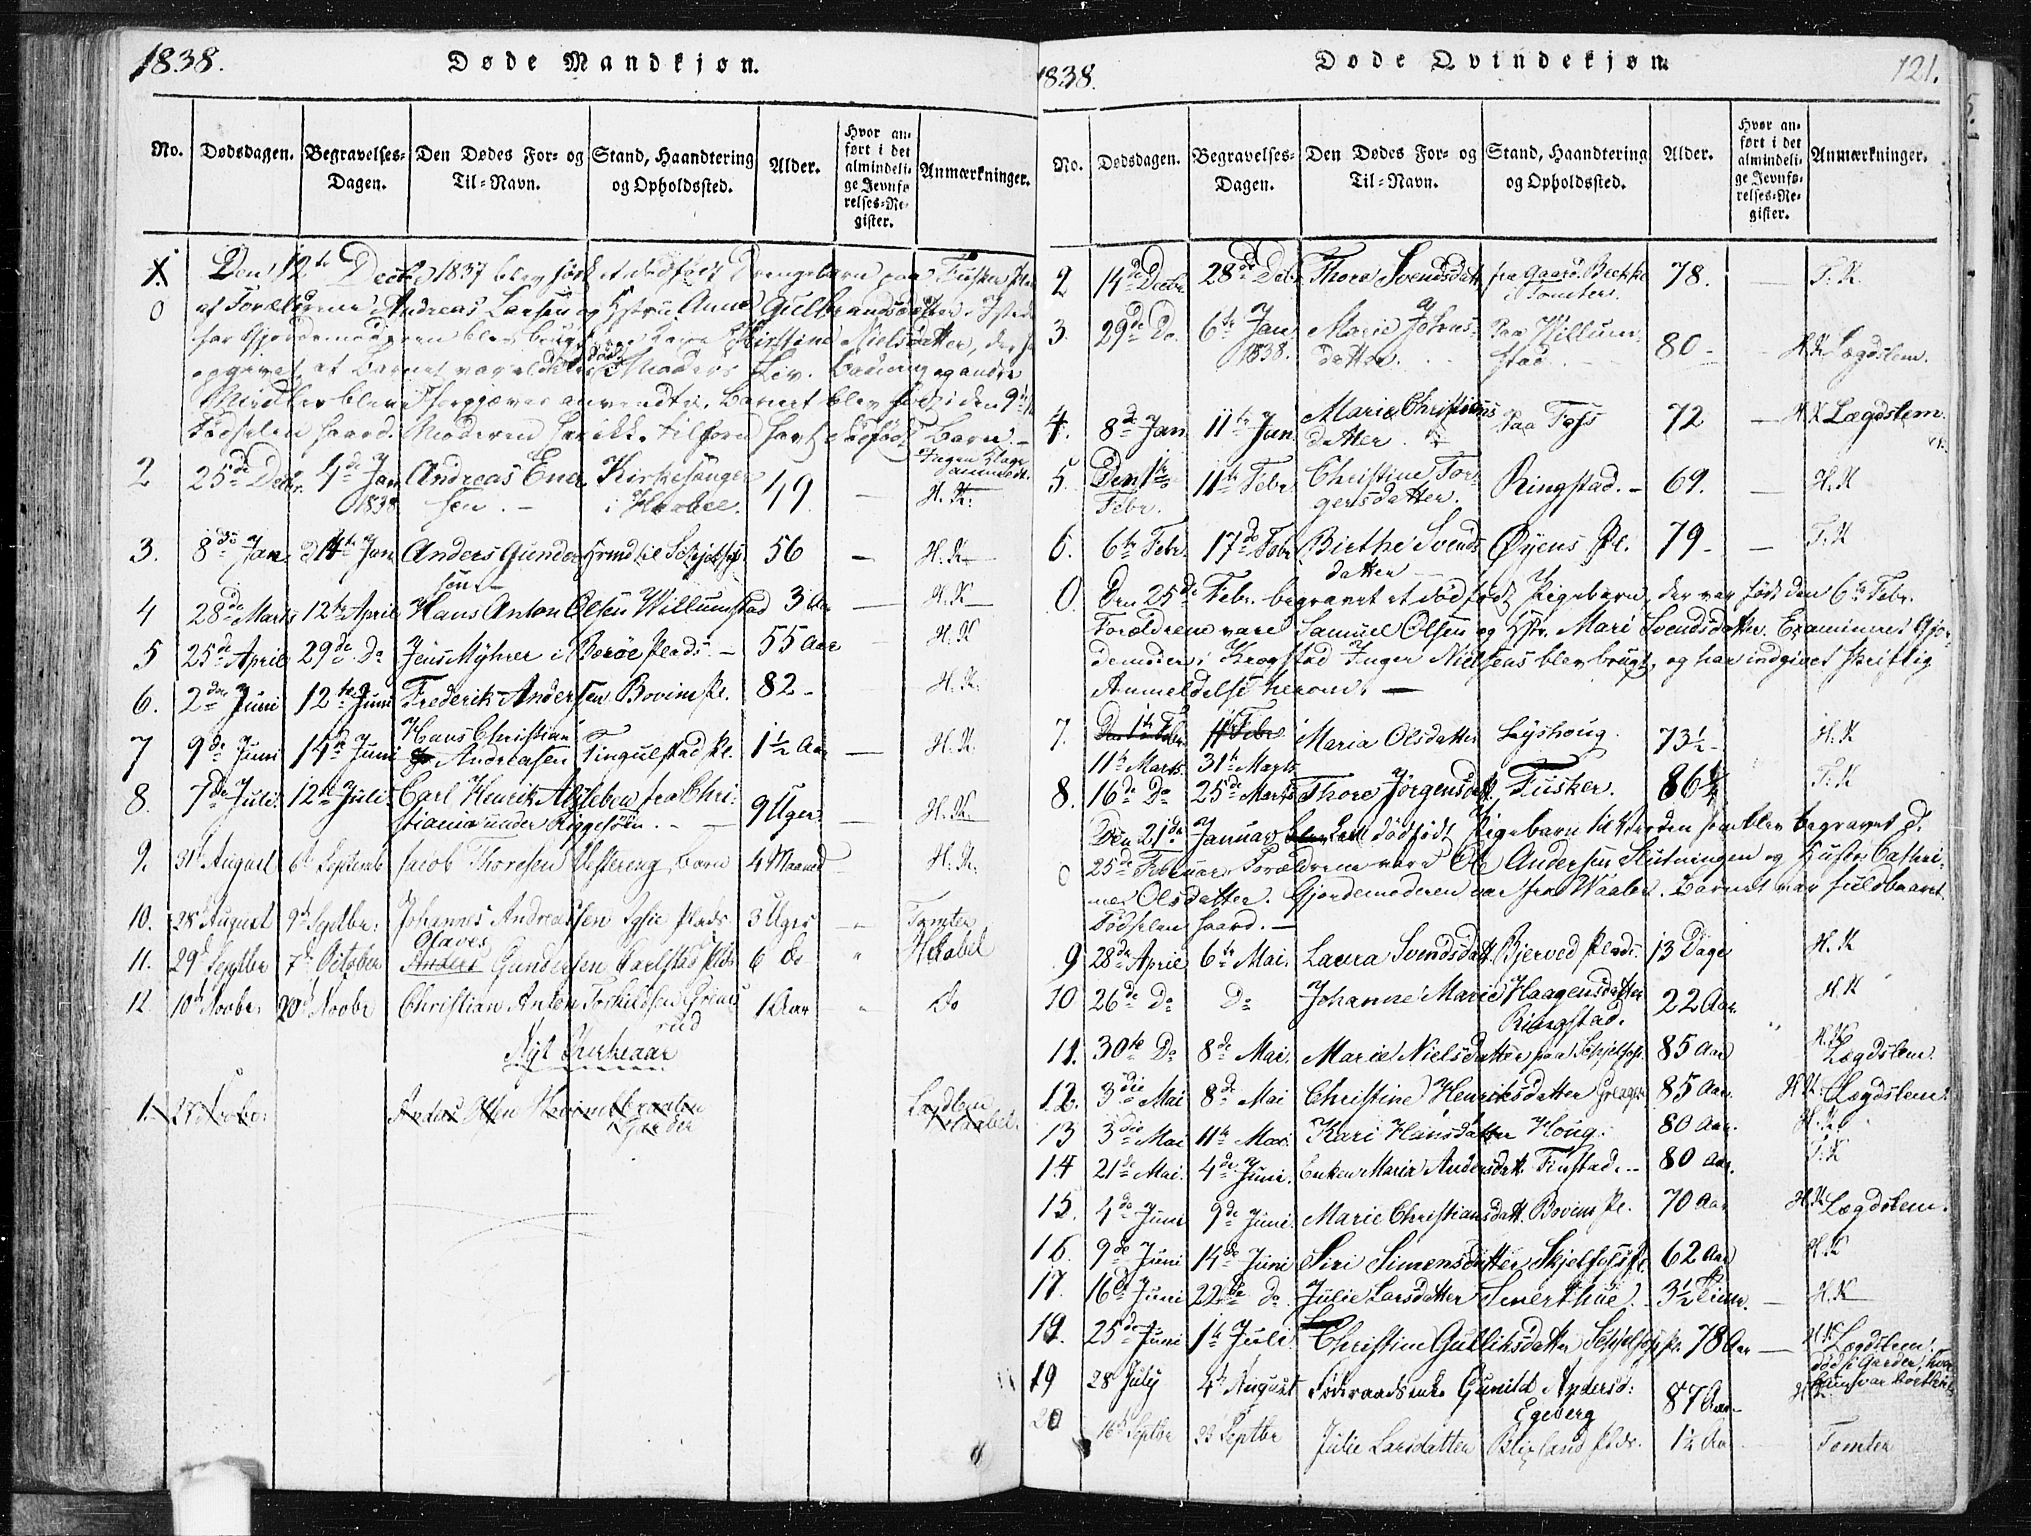 1838.
Døde Mandkjøn.
No. Dødsdagen. Begravelses-Dagen. Den Dødes For- og Til-Navn. Stand, Haandtering og Opholdssted. Alder. Hvor anført i det almindelige Jevnførelses-Register. Anmærkninger.
Den 12te Decbr 1837 blev født et dødfødt Drengebarn paa Fusker
0 af Forældrene Andreas Larsen og Hstru Anne Gulbrandsdatter.
blev Kirstine Nielsdatter, der
opgivet at Barnet var død i Moders Liv. Badning og andre
Midler bleve forgjæves anvendte. Barnet blev født den 9
Fødselen haard. Moderen har ikke tilforn havt dødfødt Barn. –
2 25de Decbr. 4de Jan 1838 Andreas Enersen. – Kirkesanger i Haabel. 49. – H. K.
3. 8de Jan. 14de Jan Anders Gundersøn Skjelfos 56 – H. K.
4 28de Marts 12te April Hans Anton Olsen Willumstad 3 Aar – H. K.
5 25de April 29de Do Jens Myhrer i Borøe Plads. – 55 Aar – H. K.
6. 2den Juni 12te Juni Frederik Andersen Bovim Pl. 82 – H. K.
7 9de Juni 14de Juni Hans Christian Andreasen Tingulstad Pl. 1½ Aar – H. K.
8. 7de Juli 12te Juli Carl Henrik fra Christiania under Riggesøen. – 9 Uger. H. K.
9. 31te August 6te Septembr Jacob Thoresen Vestereng, Barn 4 Maaned – H. K.
10. 28 August 9de Septbr. Johannes Andreassen Plads 3 Uger „ Tomter
11. 29d Septbr 7de October Olaves Anders Gundersen Carlstad Plds 6 Do „ Haabel
12 10de Novbr. 20de Novbr Christian Anton Torkildsen Grinerud 1 Aar „ Do
Nyt Kirkeaar
1. 27 Novbr. Andas Olsen Lægdslem Haabel.
1838.
Døde Qvindekjøn.
121.
No. Dødsdagen. Begravelses-Dagen. Den Dødes For- og Til-Navn. Stand, Haandtering og Opholdssted. Alder. Hvor anført i det almindelige Jevnførelses-Register. Anmærkninger.
2 14de Decbr 28de Do Thore Svendsdatt fra Gaard Brekke i Tomter. 78. – T. K.
3. 29de Do. 6te Jan 1838. Marie Johnsdatter. Paa Willumstad. 80 – – H. K. Lægdslem.
4. 8de Jan 11te Jan Marie Christiansdatter. Paa Foss 72 – H. K Lægdslem.
5. Den 1te Febr. 11te Febr. Christine Torgersdatter. Ringstad. – 69. – H. K
6. 6te Febr. 17de Febr Birthe Svendsdatter Øyens Pl. 79 – – T. K
0. Den 25de Febr. begravet et dødfødt Pigebarn, der var født den 6te Febr.
Forældrene vare Samuel Olsen og Hstr. Mari Svendsdatter. Examineret Gjordemoder i Krogstad Inger Nielsens blev brugt, og har indgivet skriftlig
Anmeldelse herom. –
7. Den 1te Febr. 11te Febr. 11te Marts. 31te Marts Maria Olsdatter Lyshoug. 73½ – H. K
8. 16de Do 25de Marts Thore Jørgensdatt. Fusker. 86¼ T. K
Den 21de Januar dødfødt Pigebarn til Verden som blev begravet d.
0 25de Februar. Forældrene vare Ole Andersen Slutningen og Hustru Cathrine Olsdatter. Gjordemoderen var fra Waaler. Barnet var fuldbaaret.
Fødselen haard. –
9 28de April 6te Mai. Laura Svendsdatt. Bjerved Plads. 13 Dage H. K
10 26de Do Do Johanne Marie Haagensdatter Ringstad. 22 Aar. H. K
11. 30te Do 8de Mai. Marie Nielsdatter paa Skjelfos. 85 Aar „ H. K. Lægdslem.
12. 3die Mai 8de Mai Christine Henriksdatter Greager 85 Aar. H. K. Lægdslem.
13 3die Mai 11te Mai. Kari Hansdatter Houg. 80 Aar. H. K
14 21de Mai. 4de Juni. Enken Maria Andersdatt. Finstad. – 80 Aar. T. K
15. 4de Juni 9de Juni. Marie Christiansdatt. Bovim Pl. 70 Aar H. K. Lægdslem.
16. 9de Juni 14de Juni Siri Simensdatter Skjelfos Pl. 62 Aar H. K
17. 16de Juni 22de do Julie Larsdatter Smerthue. 3½ Time. – H. K
18. 25de Juni 1te Juli Christine Gulliksdatter Skjelfos Pl. 78 Aar – H. K Lægdslem. døde i Garder, hvor hun var
19 28 July 4de August Føderaadsenke Gunild Andersd: Egeberg 87 Aar – H. K.
20 16de Septbr 23 Septbr Julie Larsdatter Bligland Plds. 1¼ Aar Tomter